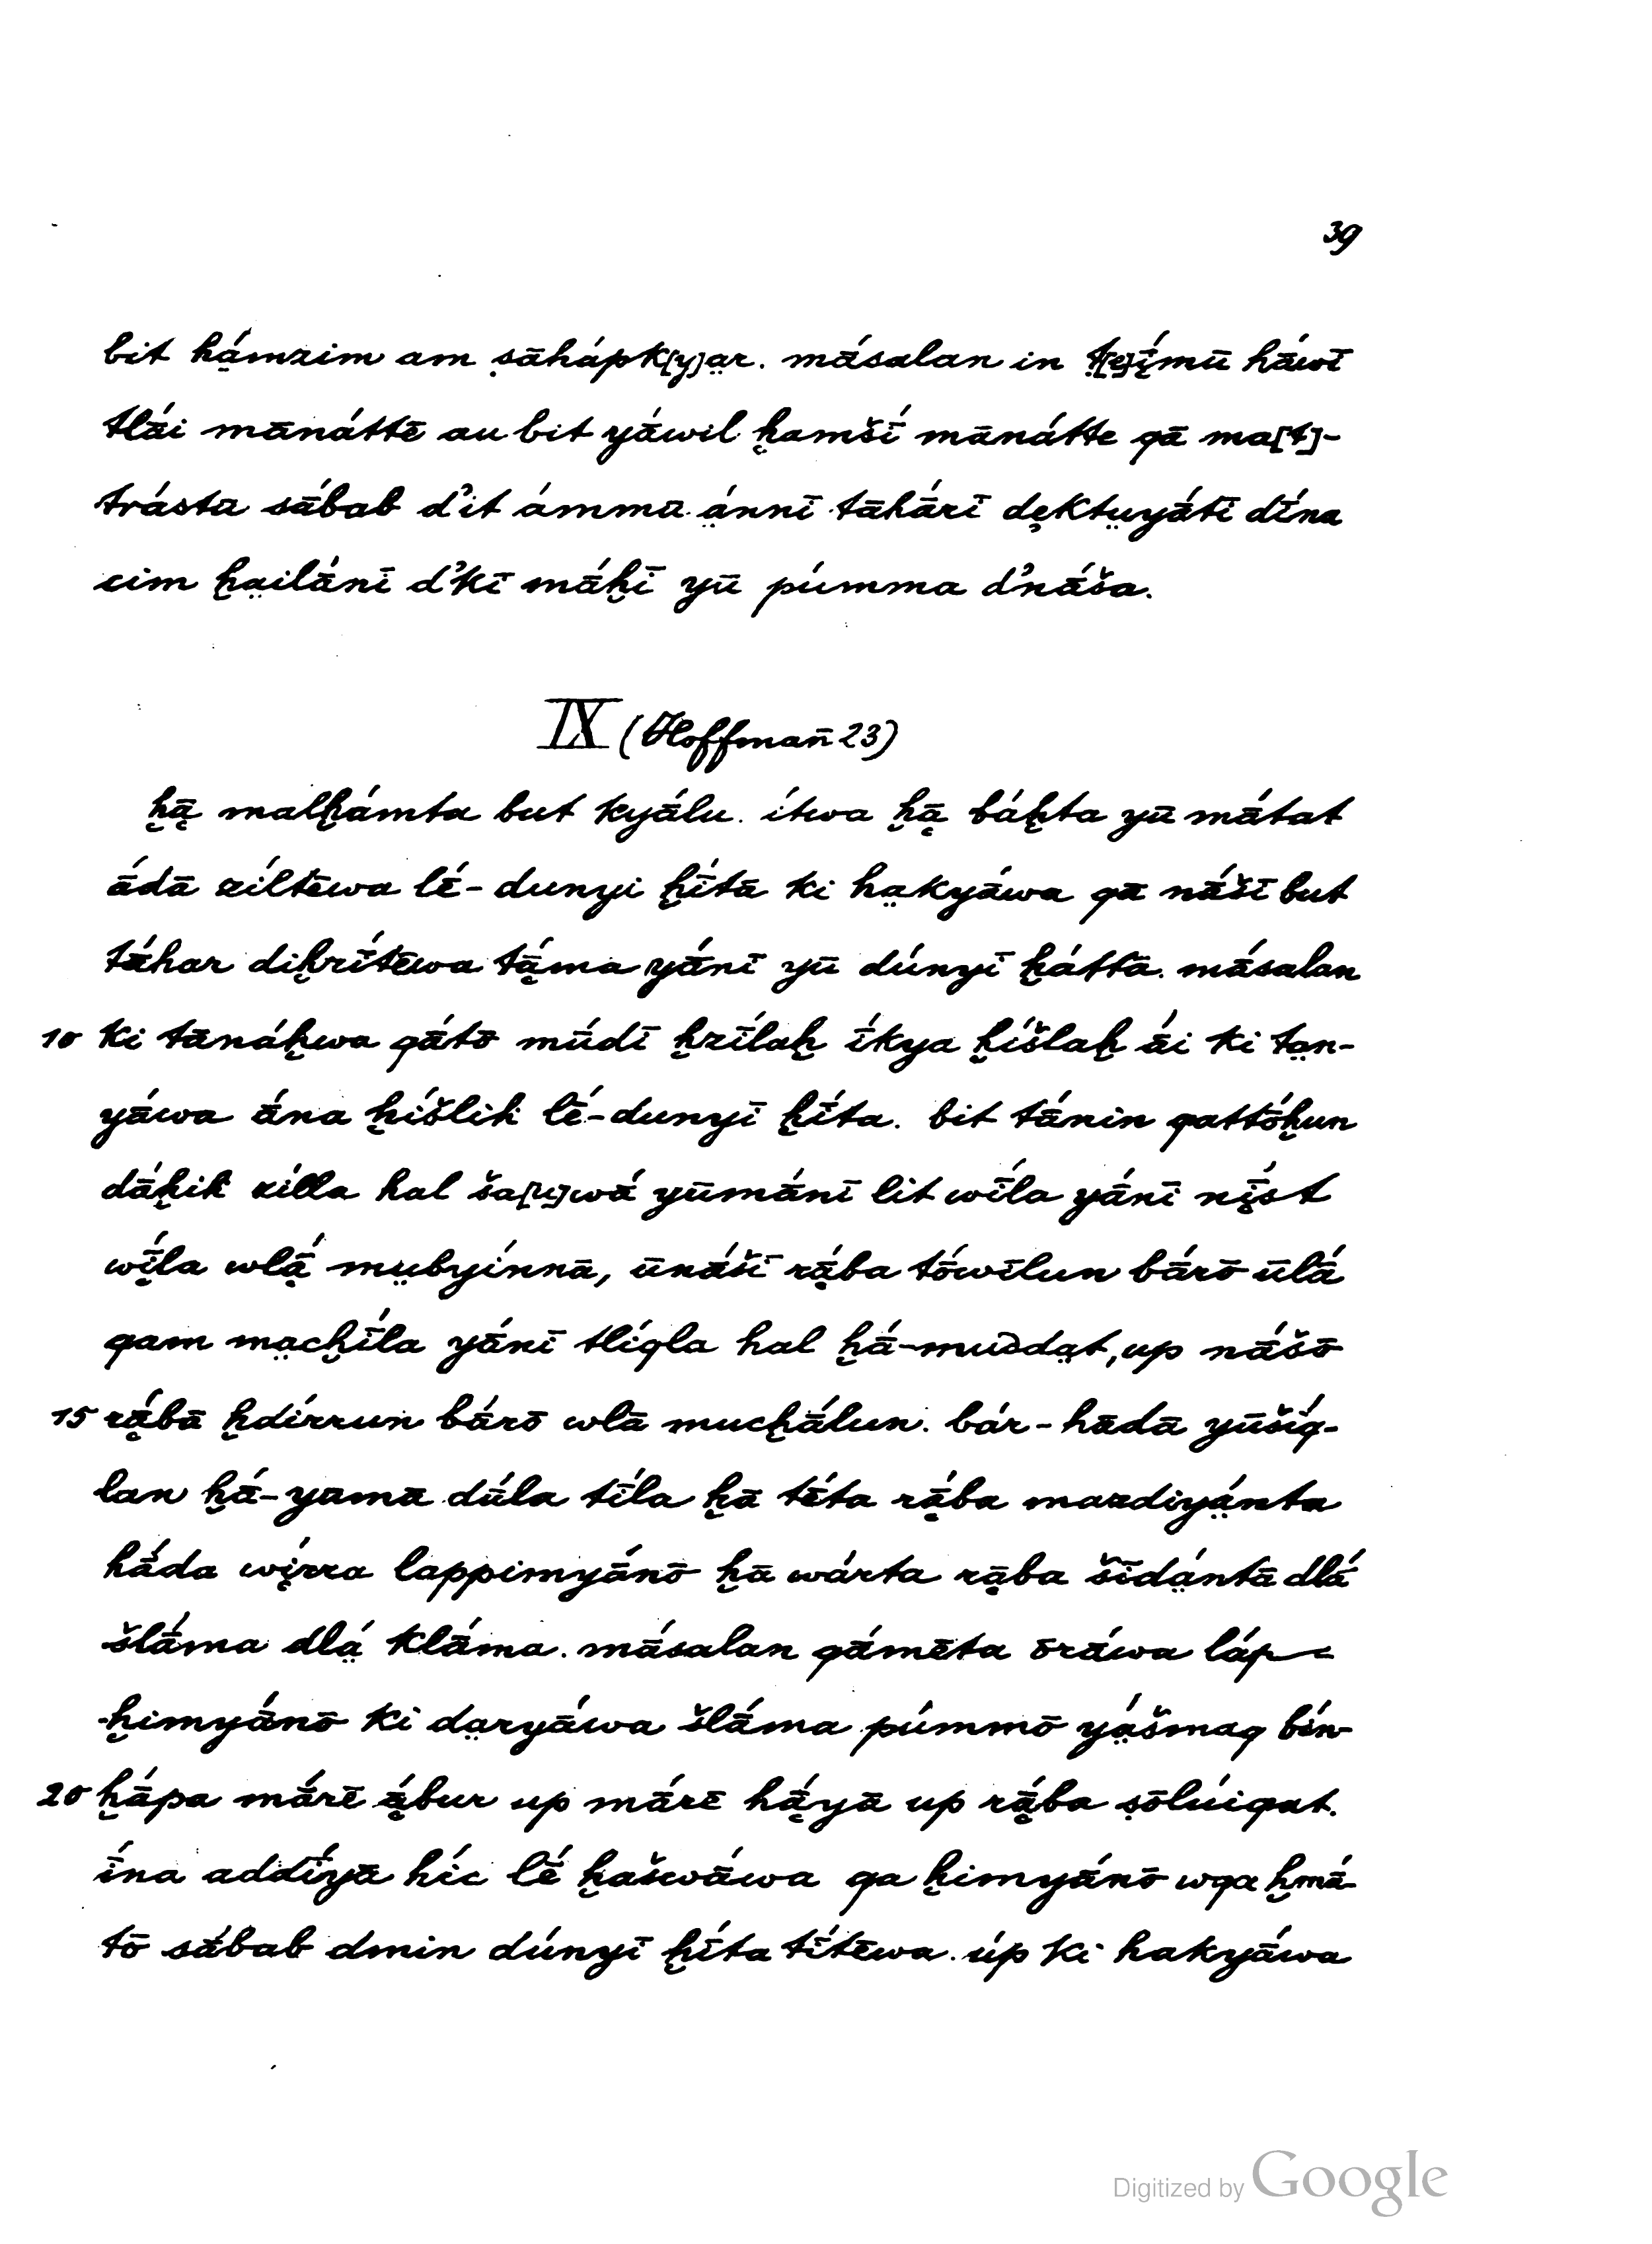 39
bit há̤mzim am ṣāhápk[y]a̤r. mā́salan in ṭ[e̯]ī́mū hā́wī
tlā́i mānáttē au bit yā́wil ḫamšī́ mānátte qā ma[t]-
trásta sā́bab d'it ámmū á̤nnī tāhā́rī dẹktṳyā́tī dī́na
cim ḫa̤ilā́nī d'kī mā́ḫī yū púmma d'nā́ša.
IX (Hoffmañ 23)
ḫā̯ malḫámta but kyā́lu. ítwa ḫā̯ báḫta yū mā́tat
ā́dā ziltēwa lḗ-dunyi ḫī́tā ki ha̤kyā́wa qā nā́šī but
tā́har diḫrī́tēwa tā̯́ma yā́nī yū dúnyī ḫáttā. mā́salan
10 ki tānáḫwa qā́tō mū́dī ḫzī́laḫ ī́kya ḫíšlaḫ ā́i ki ta̤n-
yā́wa ā́na ḫíšliḫ lḗ-dunyī ḫī́ta. bit tā́nin qattṓḫun
dā́ḫiḫ zílla hal ša[u̯]wā́ yūmā́nī lit wī́la yā́nī nị̄́st
wī̯́la wlā̯́ mṳbyínnā, ūnā́šī rā̯́ba tṓwīlun bā́rō ūlā́
qam ma̤cḫī́la yā́nī tlíqla hal ḫā́-mudda̤t, up nā́šō
15 rā̯́bā ḫdírrun bā́rō wlā mucḫā́lun. bár-hādā yūšíq-
lan ḫā́-yumā dū́la tī́la ḫā tḗta rā̯́ba mazdiyá̤nta
hā́da wị́rra lappimyā́nō ḫā wárta rā̯ba šīdá̤ntā dlā́
šlā́ma dlā̤́ klā́ma. mā́salan qā́mēta ōrā́wa láp-
-ḫimyā́nō ki da̤ryā́wa šlā́ma púmmō yá̤šmaq bín-
20 ḫā́pa mā́rē ā̯́bur up mā́rē hā̯́yā up rā̯́ba ṣōlúiqat.
ī́na addī́yā híc lḗ ḫašwā́wa qa ḫimyā́nō wqa ḫmā́-
tō sā́bab dmin dúnyī ḫī́ta tī́tēwa. úp ki hakyā́wa
Digitized by Google